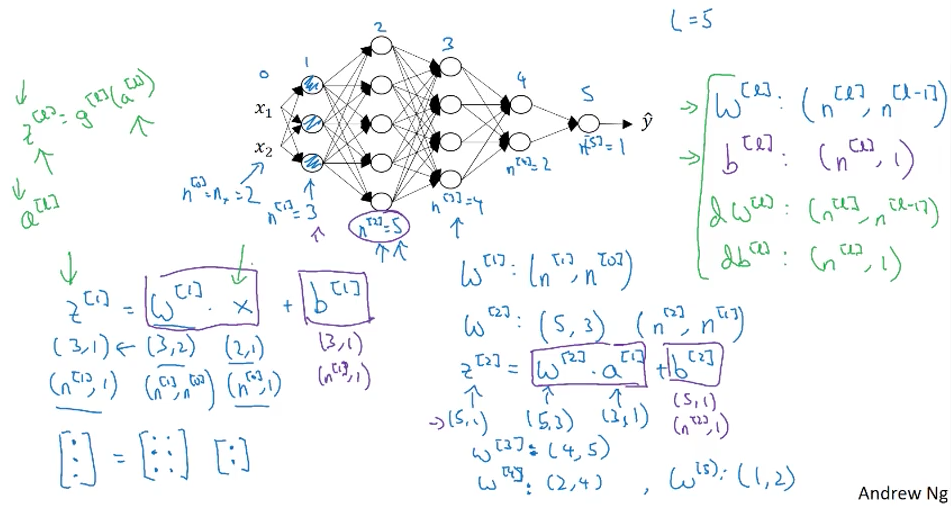 L = 5
0 1 2 3 4 5
x₁
x₂
ŷ
n^[0] = nₓ = 2
n^[1] = 3
n^[2] = 5
n^[3] = 4
n^[4] = 2
n^[5] = 1
z^[l] = g^[l](a^[l])
a^[l]
→ W^[l] : (n^[l], n^[l-1])
→ b^[l] : (n^[l], 1)
dW^[l] : (n^[l], n^[l-1])
db^[l] : (n^[l], 1)
z^[1] = W^[1] · x + b^[1]
(3,1) ← (3,2) (2,1) (3,1)
(n^[1], 1) (n^[1], n^[0]) (n^[0], 1) (n^[1], 1)
[⋮] = [⋮ ⋮] [:]
W^[1] : (n^[1], n^[0])
W^[2] : (5,3) (n^[2], n^[1])
z^[2] = W^[2] · a^[1] + b^[2]
→ (5,1) (5,3) (3,1) (5,1)
(n^[2], 1)
W^[3] : (4,5)
W^[4] : (2,4) , W^[5] : (1,2)
Andrew Ng